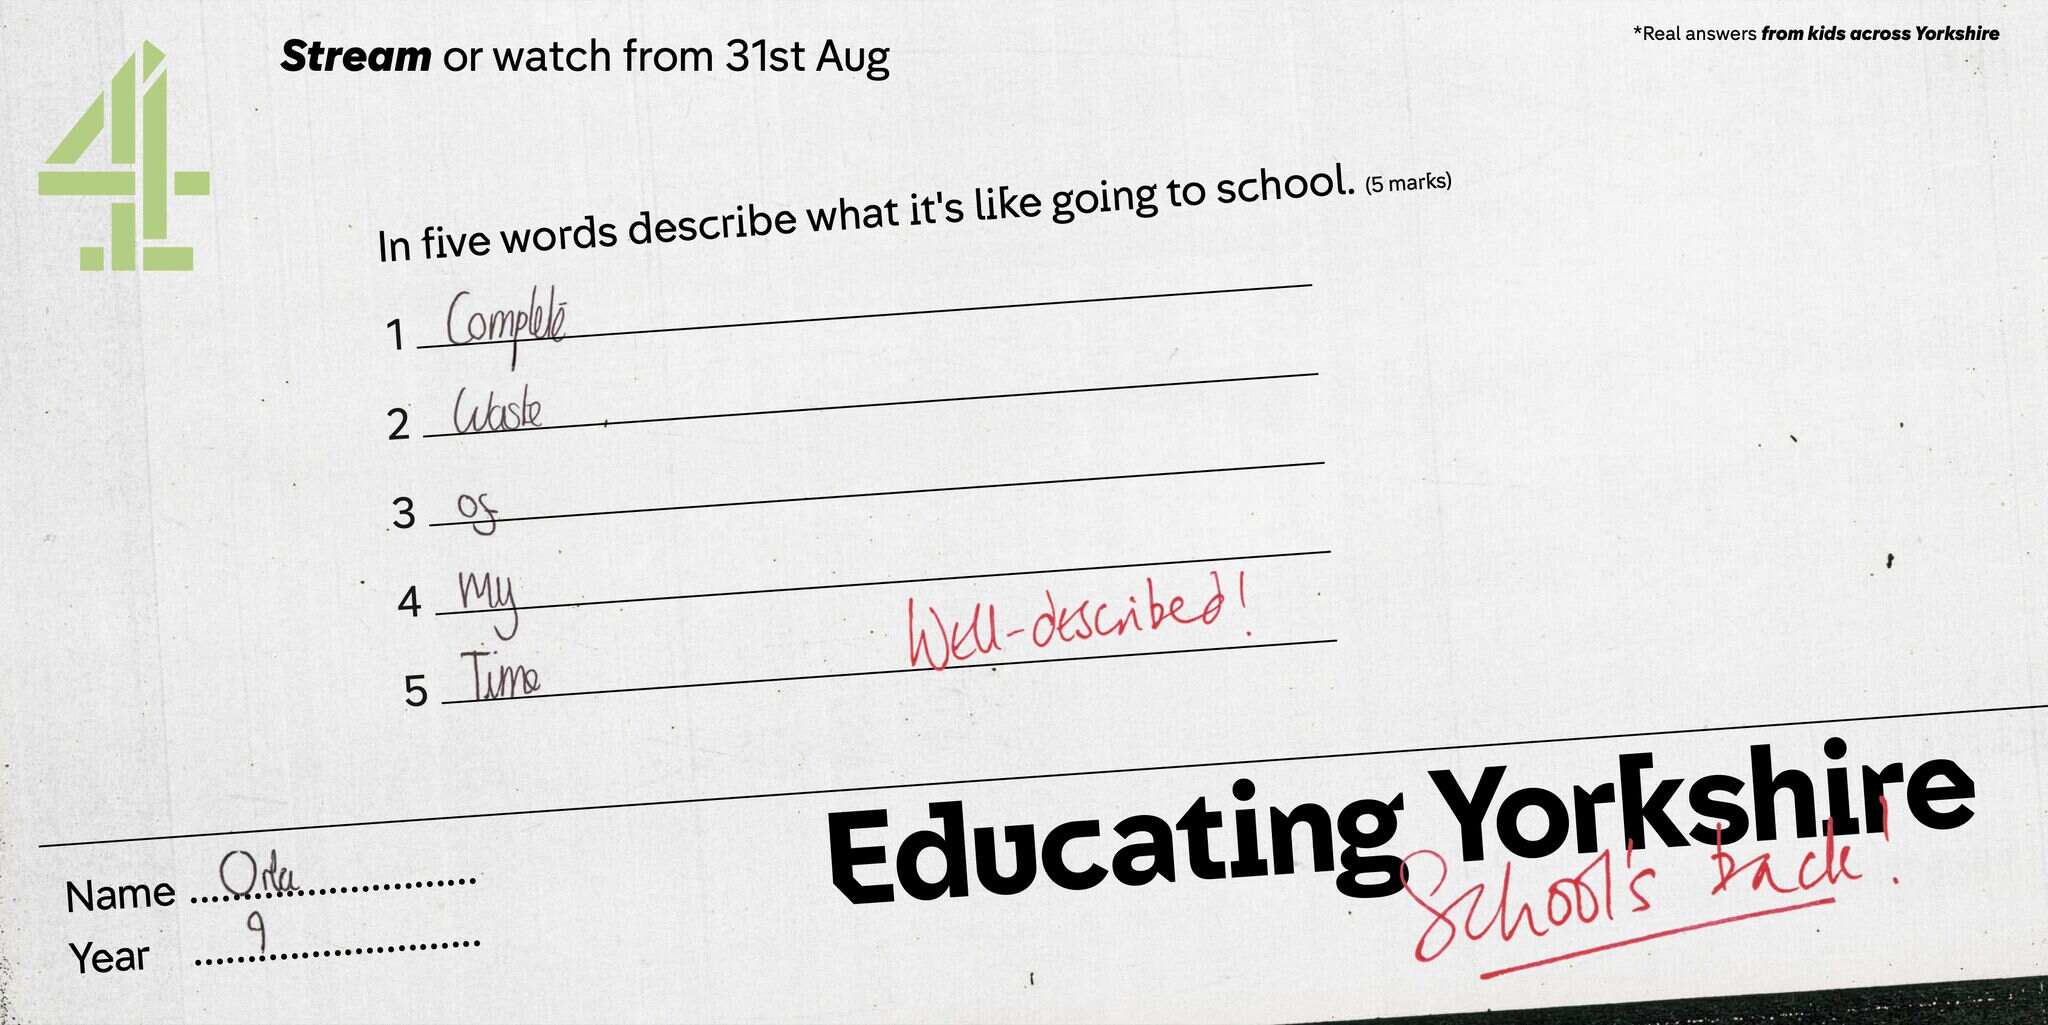 Stream or watch from 31st Aug
*Real answers from kids across Yorkshire
In five words describe what it's like going to school. (5 marks)
1 Complete
2 Waste
3 of
4 My
5 Time
Well-described!
Educating Yorkshire
School's back!
Name Orla
Year 9